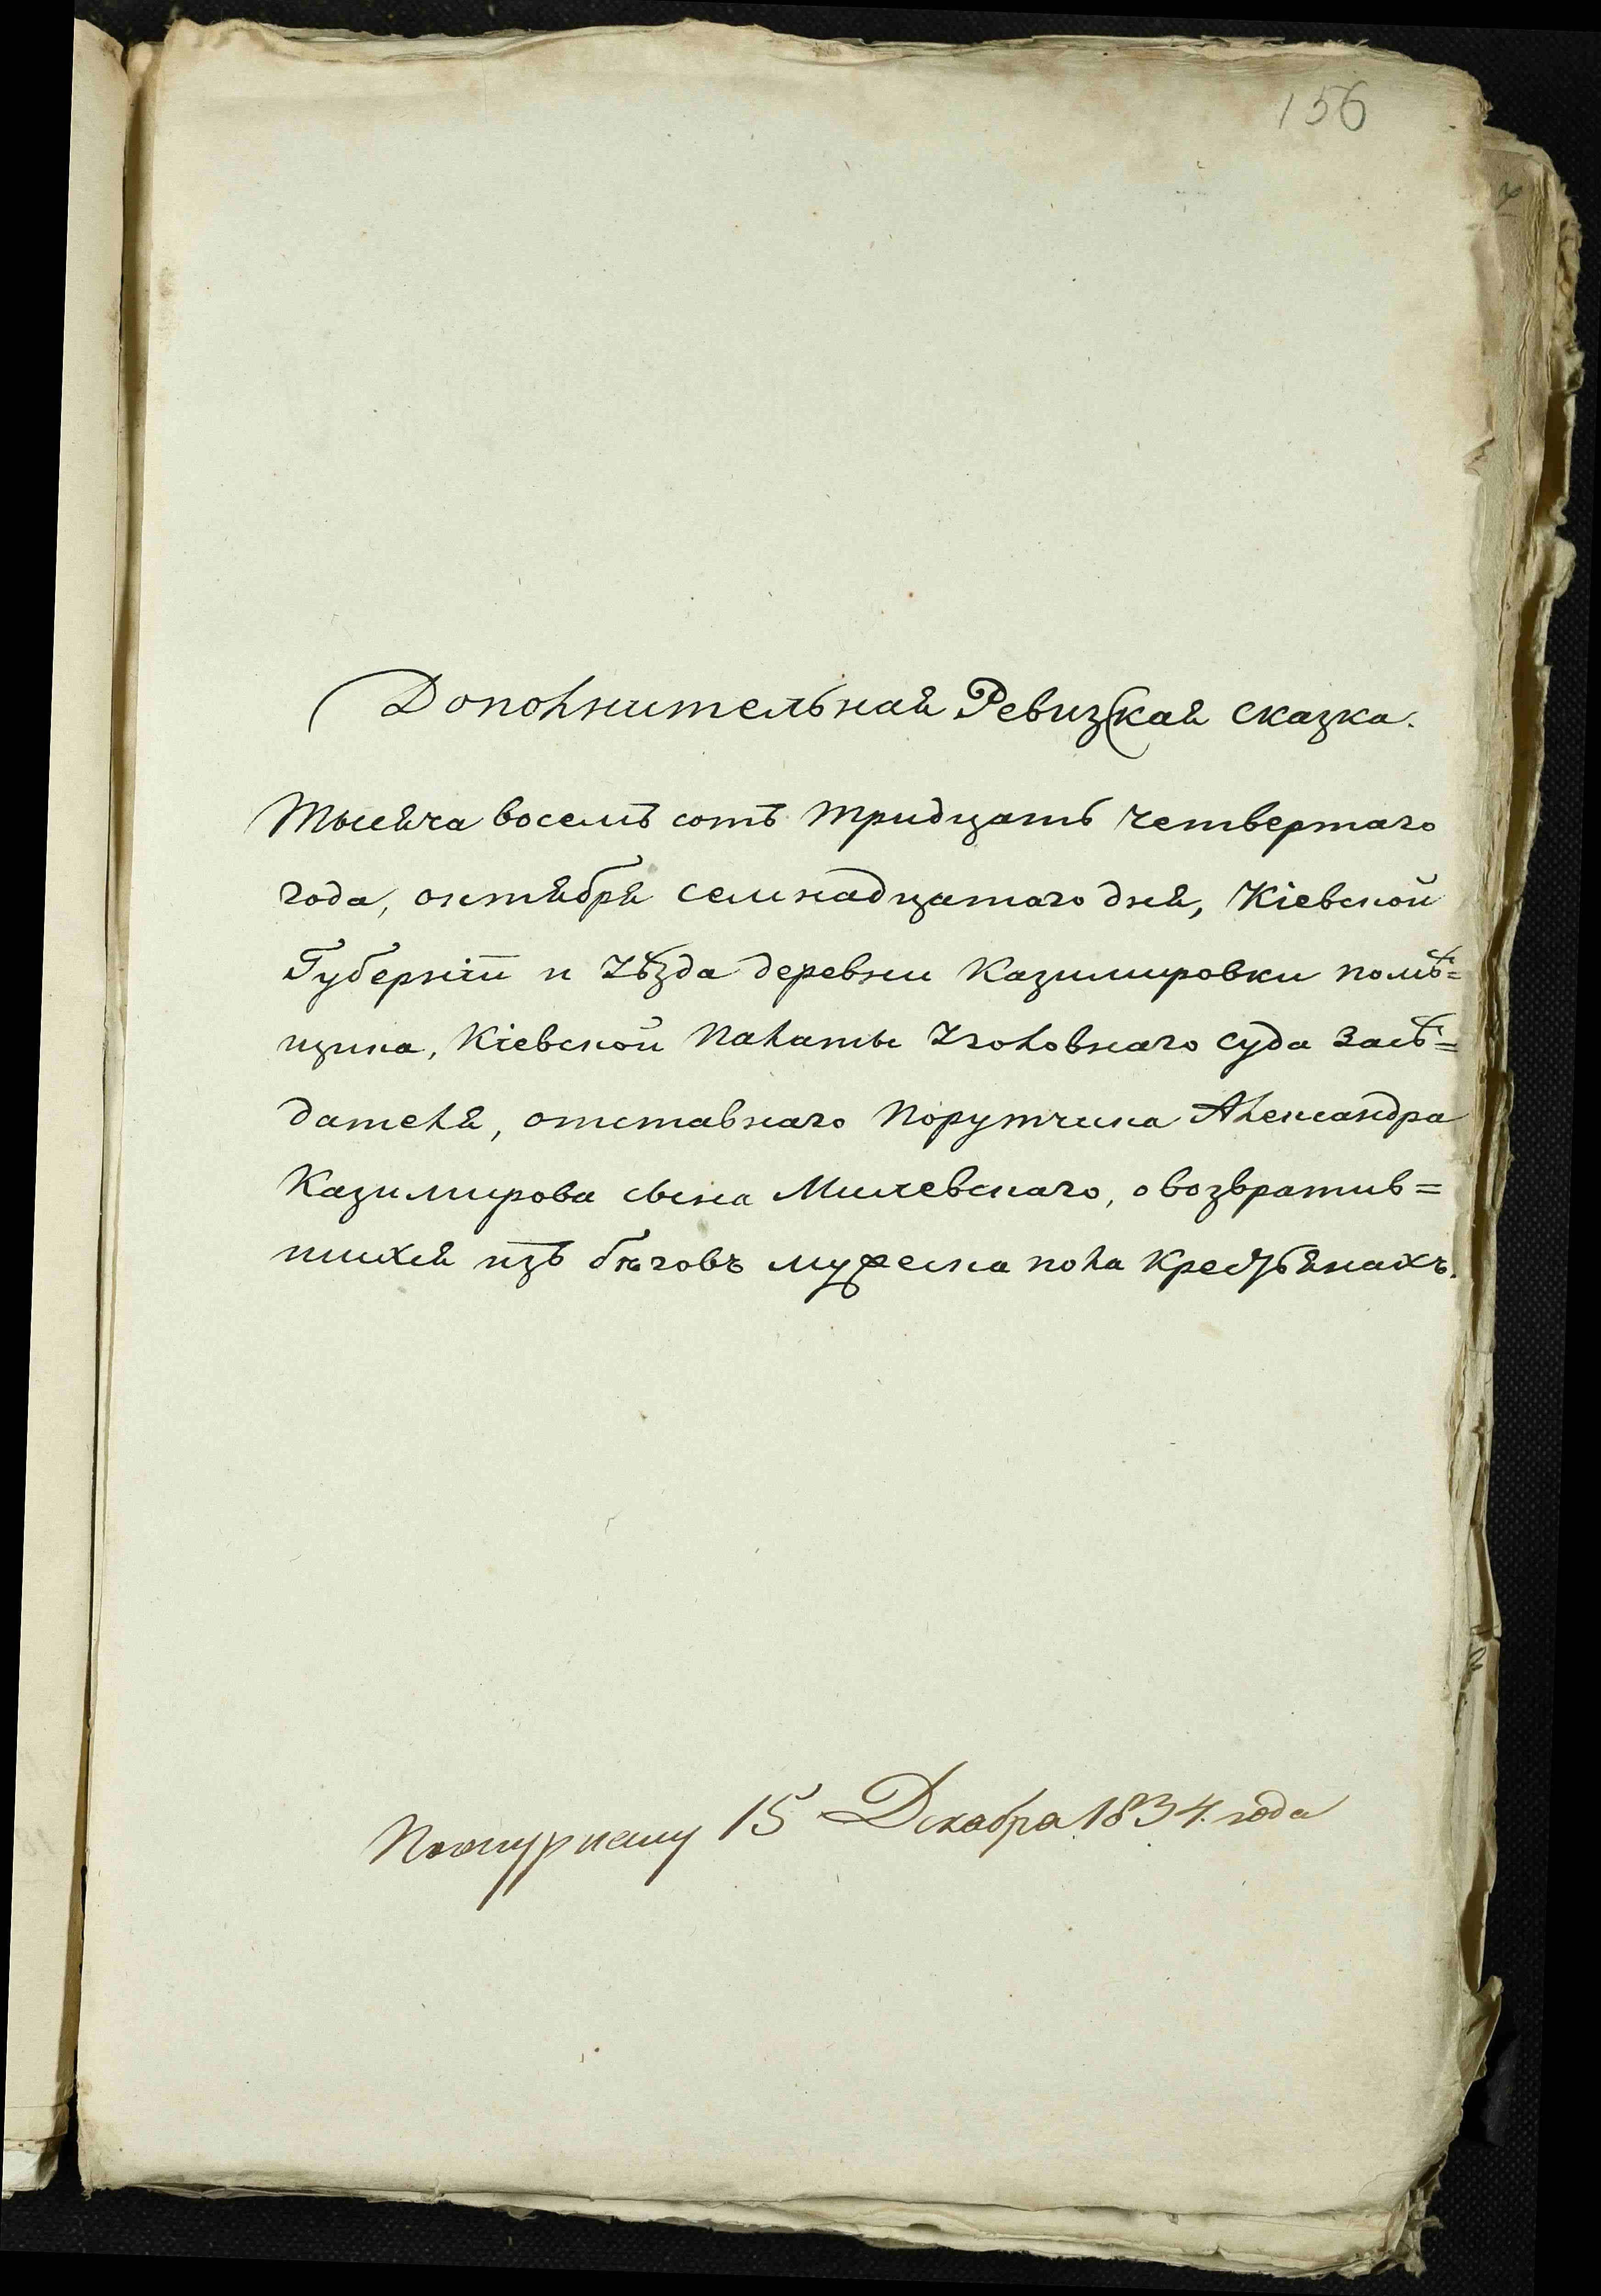 156
Дополнительная Ревизская сказка.
Тысяча восемъ сотъ тридцать четвертаго
года, октября семнадцатаго дня, Кіевской
Губерніи и Уѣзда деревни Казимировки помѣ=
щика, Кіевской Палаты Уголовнаго суда Засѣ=
дателя, отставнаго Порутчика Александра
Казимирова сына Милевскаго, о возвратив=
шихся изъ бѣговъ мужеска пола Крестьянахъ.
15 Декабра 1834. года